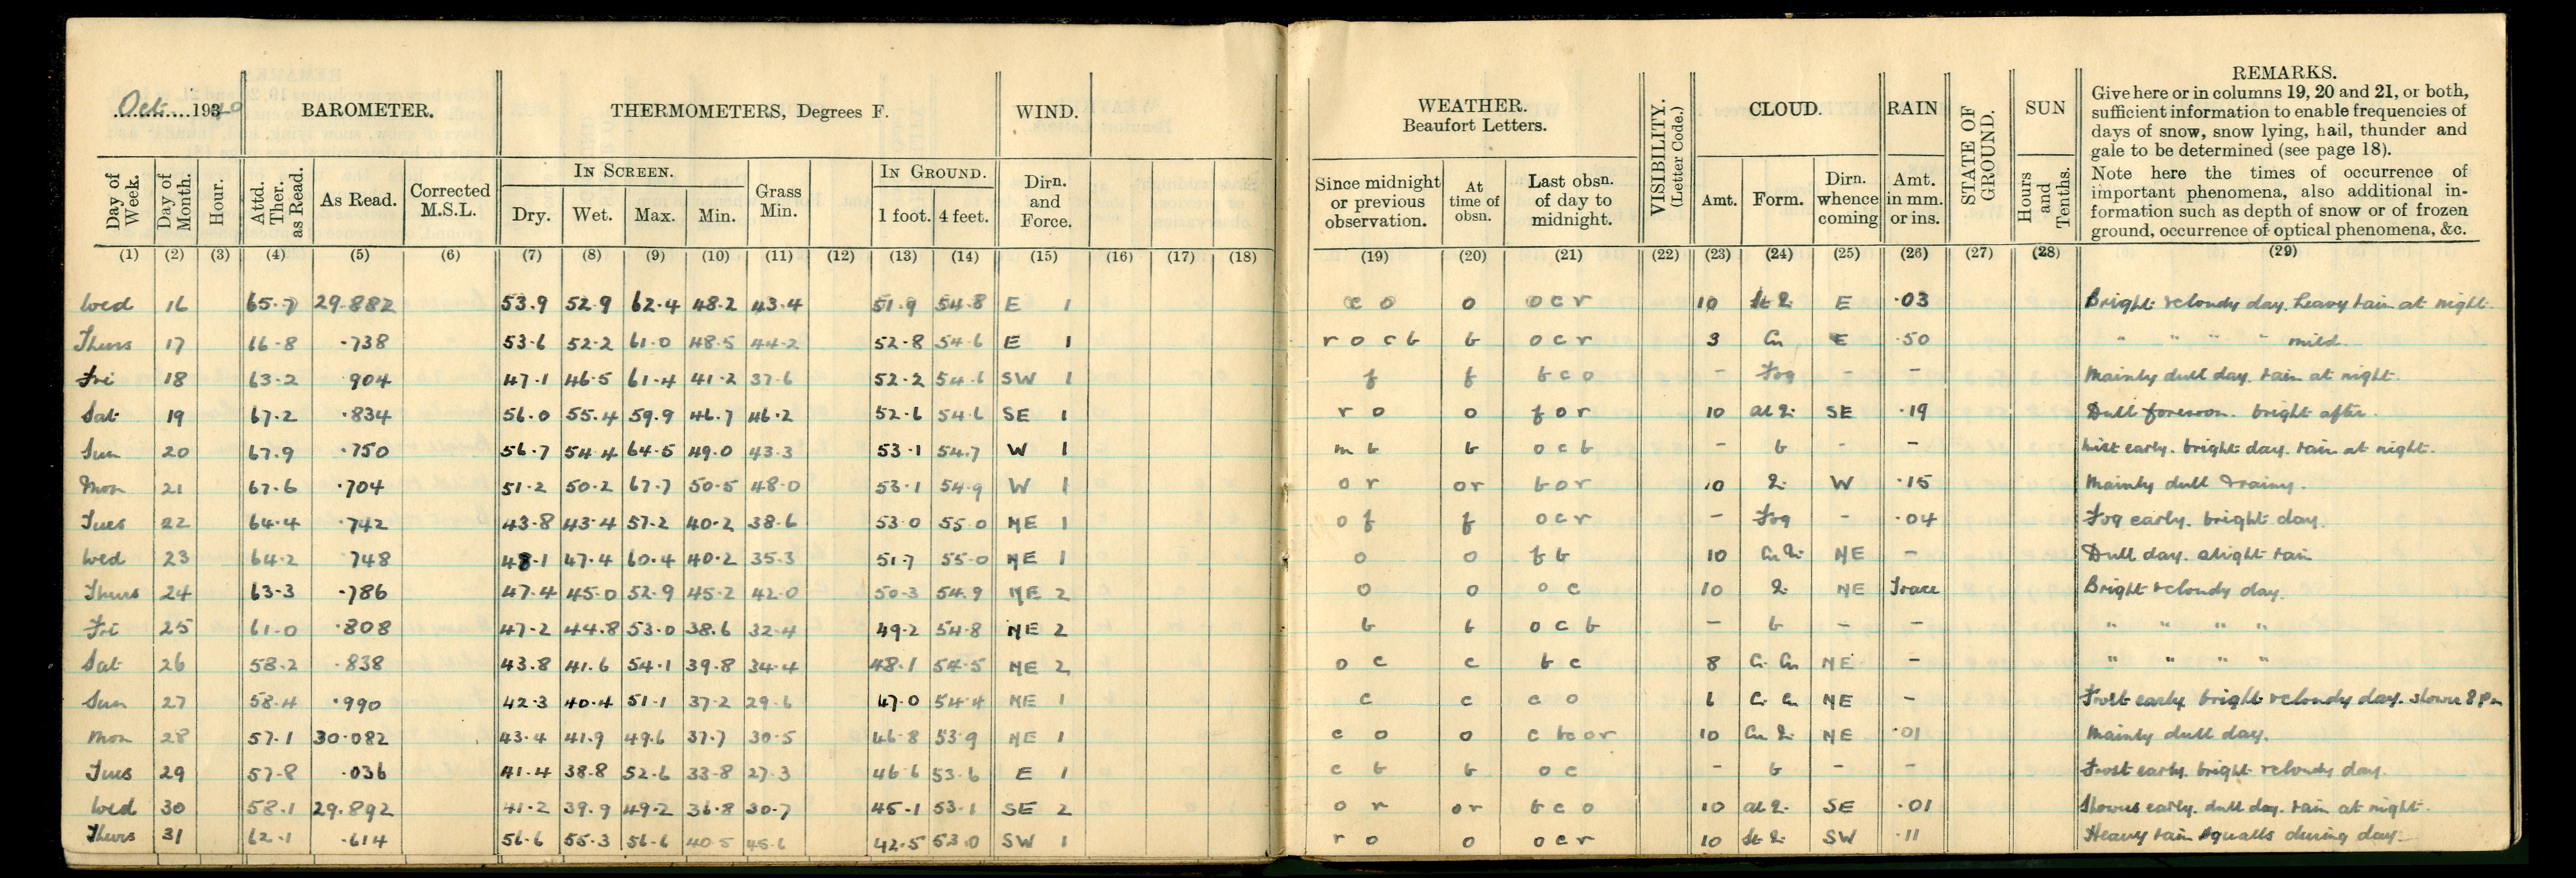 Oct 1940
BAROMETER. THERMOMETERS, Degrees F. WIND. WEATHER. Beaufort Letters. VISIBILITY. (Letter Code.) CLOUD. RAIN STATE OF GROUND. SUN REMARKS.
Give here or in columns 19, 20 and 21, or both,
sufficient information to enable frequencies of
days of snow, snow lying, hail, thunder and
gale to be determined (see page 18).
Note here the times of occurrence of
important phenomena, also additional in-
formation such as depth of snow or of frozen
ground, occurrence of optical phenomena, &c.
Day of Week. Day of Month. Hour. Attd. Ther. as Read. As Read. Corrected M.S.L. IN SCREEN. Dry. Wet. Max. Min. Grass Min. IN GROUND. 1 foot. 4 feet. Dirn. and Force. Since midnight or previous observation. At time of obsn. Last obsn. of day to midnight. Amt. Form. Dirn. whence coming Amt. in mm. or ins. Hours and Tenths.
(1) (2) (3) (4) (5) (6) (7) (8) (9) (10) (11) (12) (13) (14) (15) (16) (17) (18) (19) (20) (21) (22) (23) (24) (25) (26) (27) (28) (29)
Wed 16 65.7 29.882 53.9 52.9 62.4 48.2 43.4 51.9 54.8 E 1 c o o o c r 10 E .03 Bright & cloudy day. heavy rain at night.
Thurs 17 66.8 .738 53.6 52.2 61.0 48.5 44.2 52.8 54.6 E 1 r o c b b o c r 3 Cu E .50 " " " " mild.
Fri 18 63.2 904 47.1 46.5 61.4 41.2 37.6 52.2 54.6 SW 1 f f b c o - Fog - - Mainly dull day. rain at night.
Sat 19 67.2 .834 56.0 55.4 59.9 46.7 46.2 52.6 54.6 SE 1 r o o f o r 10 SE .19 Dull forenoon. bright after.
Sun 20 67.9 .750 56.7 54.4 64.5 49.0 43.3 53.1 54.7 W 1 m b b o c b - b - - Mist early. bright day. rain at night.
Mon 21 67.6 .704 51.2 50.2 67.7 50.5 48.0 53.1 54.9 W 1 o r or b o r 10 W .15 Mainly dull & rainy.
Tues 22 64.4 .742 43.8 43.4 57.2 40.2 38.6 53.0 55.0 NE 1 o f f o c r - Fog - .04 Fog early. bright day.
Wed 23 64.2 748 48.1 47.4 60.4 40.2 35.3 51.7 55.0 NE 1 o o f b 10 NE - Dull day. slight rain
Thurs 24 63.3 .786 47.4 45.0 52.9 45.2 42.0 50.3 54.9 NE 2 o o o c 10 NE Trace Bright & cloudy day.
Fri 25 61.0 .808 47.2 44.8 53.0 38.6 32.4 49.2 54.8 NE 2 b b o c b - b - - " " " "
Sat 26 58.2 .838 43.8 41.6 54.1 39.8 34.4 48.1 54.5 NE 2 o c c b c 8 NE - " " " "
Sun 27 58.4 .990 42.3 40.4 51.1 37.2 29.6 47.0 54.4 NE 1 c c c o 6 NE - Frost early. bright & cloudy day. shower 8 pm
Mon 28 57.1 30.082 43.4 41.9 49.6 37.7 30.5 46.8 53.9 NE 1 c o o c bcor 10 NE .01 Mainly dull day.
Tues 29 57.8 .036 41.4 38.8 52.6 33.8 27.3 46.6 53.6 E 1 c b b o c - b - - Frost early. bright & cloudy day.
Wed 30 58.1 29.892 41.2 39.9 49.2 36.8 30.7 45.1 53.1 SE 2 o r or b c o 10 SE .01 Showers early. dull day. rain at night.
Thurs 31 62.1 .614 56.6 55.3 56.6 40.5 45.6 42.5 53.0 SW 1 r o o o c r 10 SW .11 Heavy rain squalls during day.